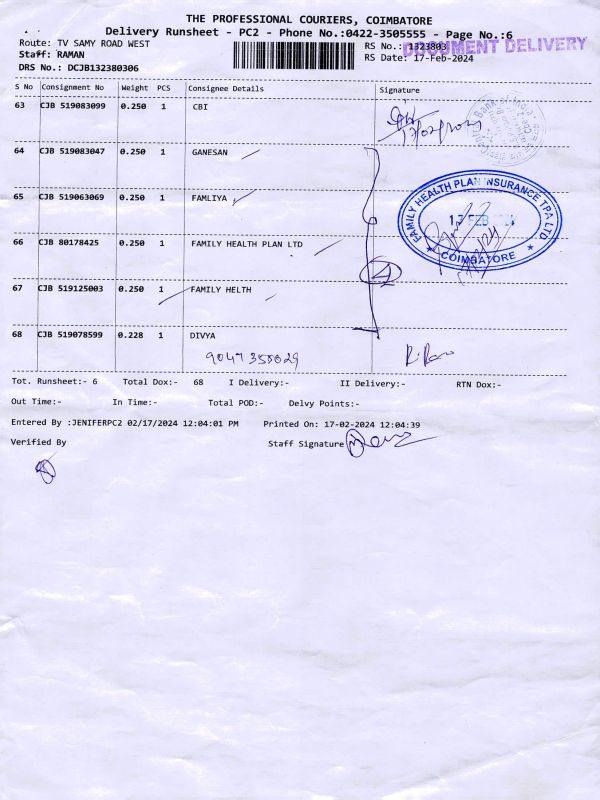 THE PROFESSIONAL COURIERS, COIMBATORE
Delivery Runsheet - PC2 - Phone No.:0422-3505555 - Page No.:6
Route: TV SAMY ROAD WEST
RS No.: 1323803
DOCUMENT DELIVERY
Staff: RAMAN
RS Date: 17-Feb-2024
DRS No.: DCJB132380306
S No Consignment No Weight PCS Consignee Details Signature
63 CJB 519083099 0.250 1 CBI
64 CJB 519083047 0.250 1 GANESAN
65 CJB 519063069 0.250 1 FAMLIYA
FAMILY HEALTH PLAN INSURANCE TPA LTD
17 FEB
COIMBATORE
66 CJB 80178425 0.250 1 FAMILY HEALTH PLAN LTD
4
67 CJB 519125003 0.250 1 FAMILY HELTH
68 CJB 519078599 0.228 1 DIVYA
Tot. Runsheet:- 6 Total Dox:- 68 I Delivery:- II Delivery:- RTN Dox:-
Out Time:- In Time:- Total POD:- Delvy Points:-
Entered By :JENIFERPC2 02/17/2024 12:04:01 PM Printed On: 17-02-2024 12:04:39
Verified By Staff Signature